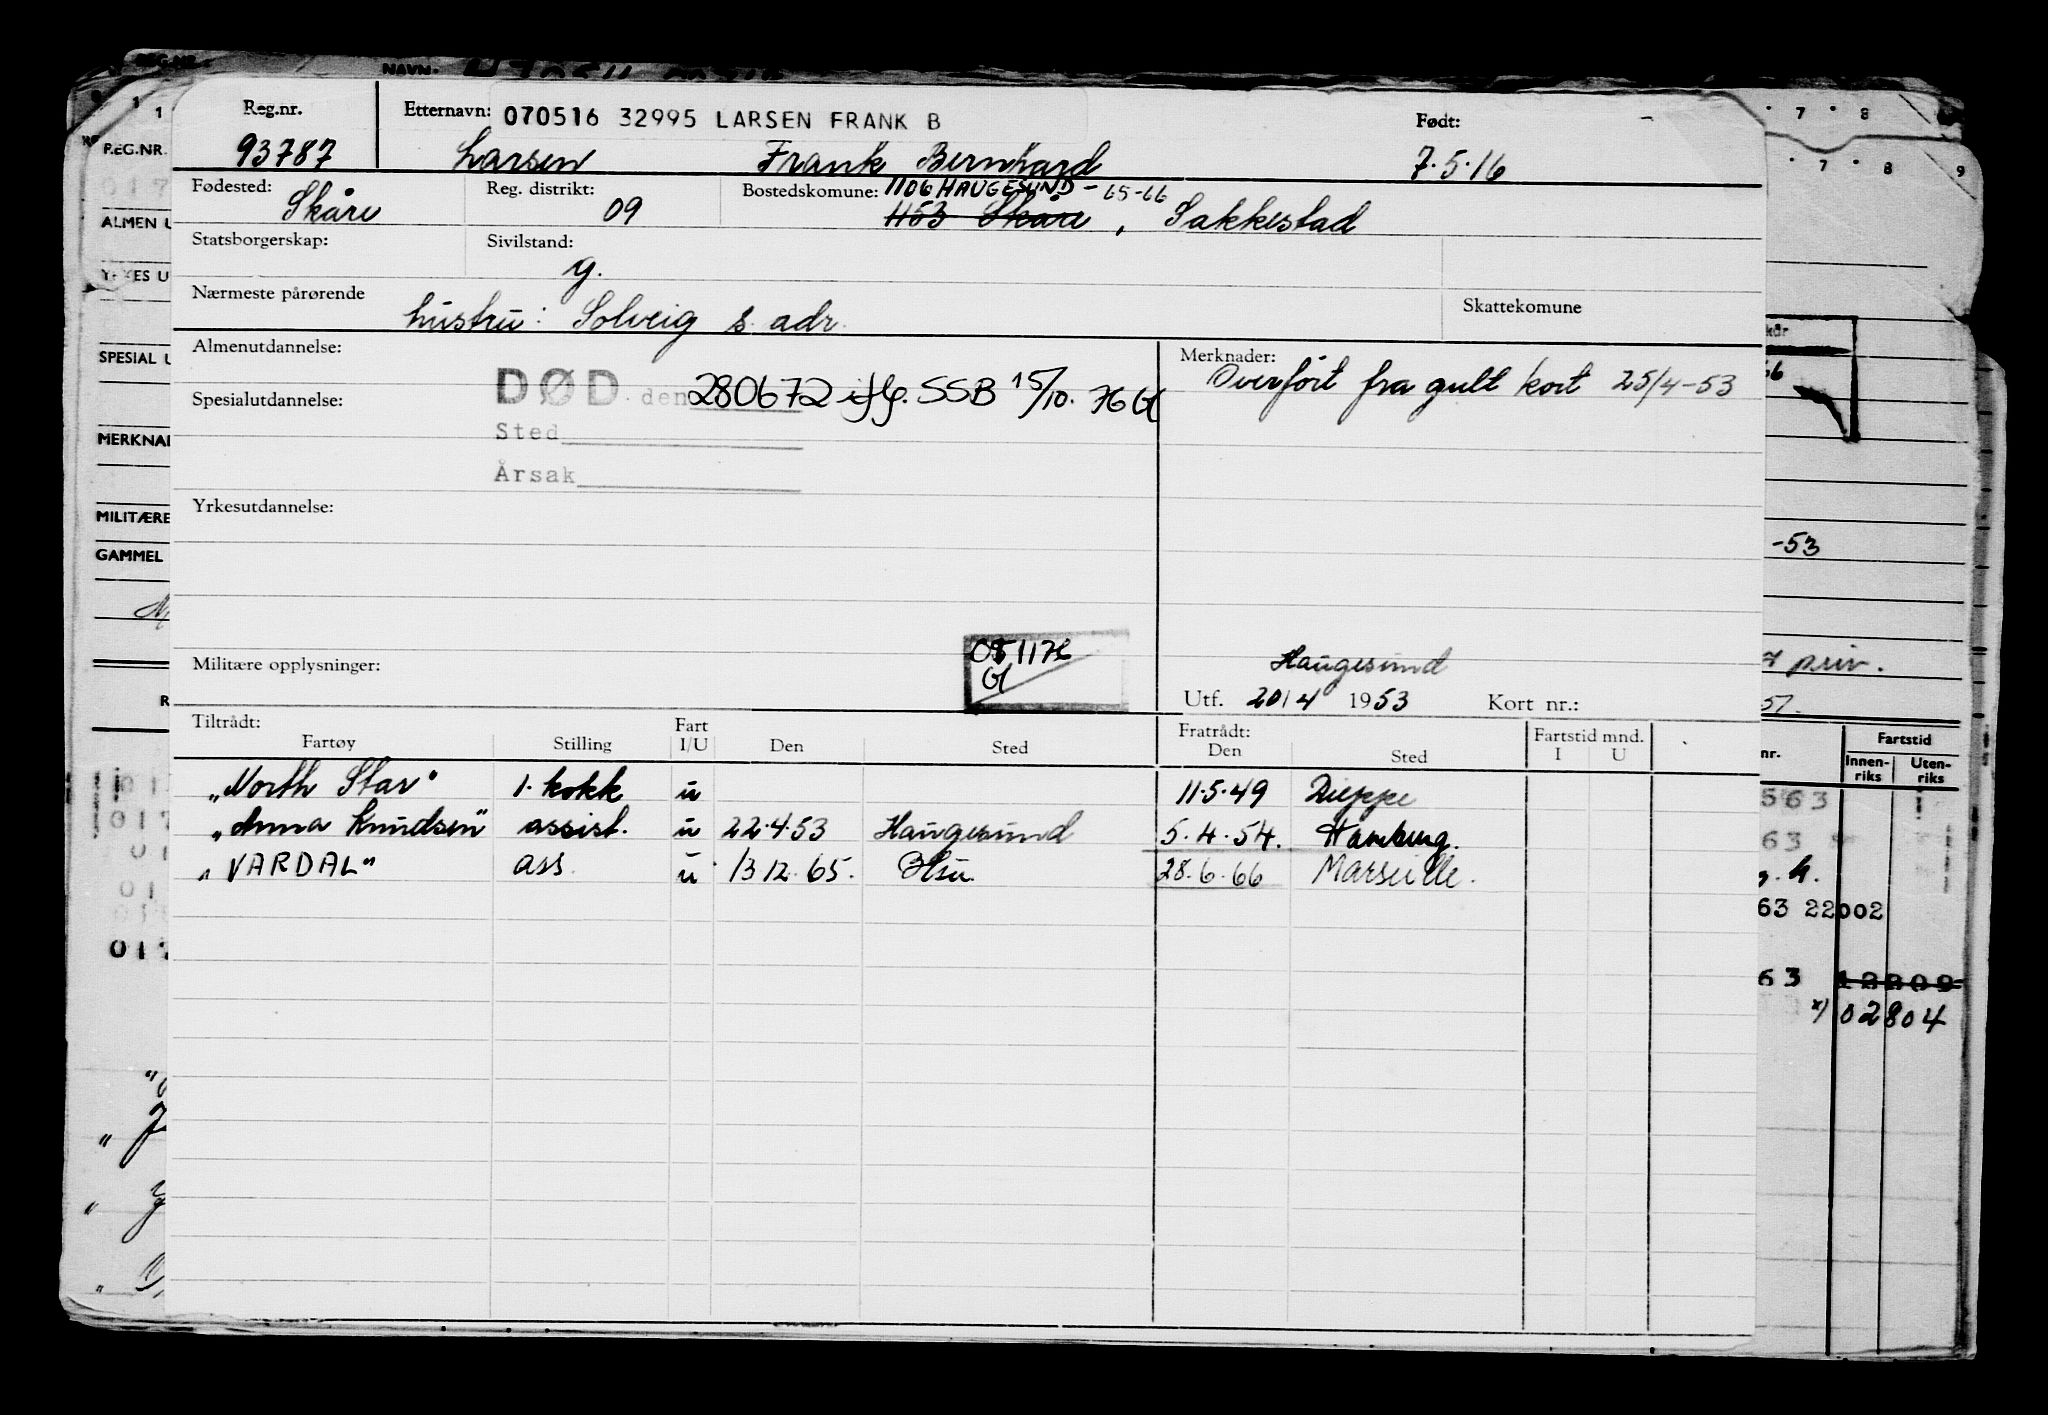 Reg.nr. Etternavn: 070516 32995 LARSEN FRANK B Født:
93787 Larsen Frank Bernhard 7.5.16
Fødested: Reg. distrikt: Bostedskomune: 1106 HAUGESUND - 65-66
Skåre 09 1153 Skåre, Sakkestad
Statsborgerskap: Sivilstand:
g.
Nærmeste pårørende Skattekomune
hustru: Solveig s. adr.
Almenutdannelse: Merknader:
Overført fra gult kort 25/4-53
Spesialutdannelse: DØD. den 280672 iflg. SSB 15/10. 76
Sted
Årsak
Yrkesutdannelse:
Militære opplysninger: Haugesund
Utf. 20/4 1953 Kort nr.:
Tiltrådt: Fart Fratrådt: Fartstid mnd.
Fartøy Stilling I/U Den Sted Den Sted I U
„North Star" 1. kokk u 11.5.49 Dieppe
„Anna Knudsen" assist. u 22.4.53 Haugesund 5.4.54. Hamburg.
„VARDAL" ass. u 13.12.65. 28.6.66 Marseille.
REG.NR. NAVN
REG.NR.
ALMEN U
YRKES U
SPESIAL U
MERKNAD
MILITÆRE
GAMMEL
7 8
7 8 9
-53
priv.
57.
nr. Fartstid
Innen-riks Uten-riks
563
63
63 22002
63 12209
x) 02804
017